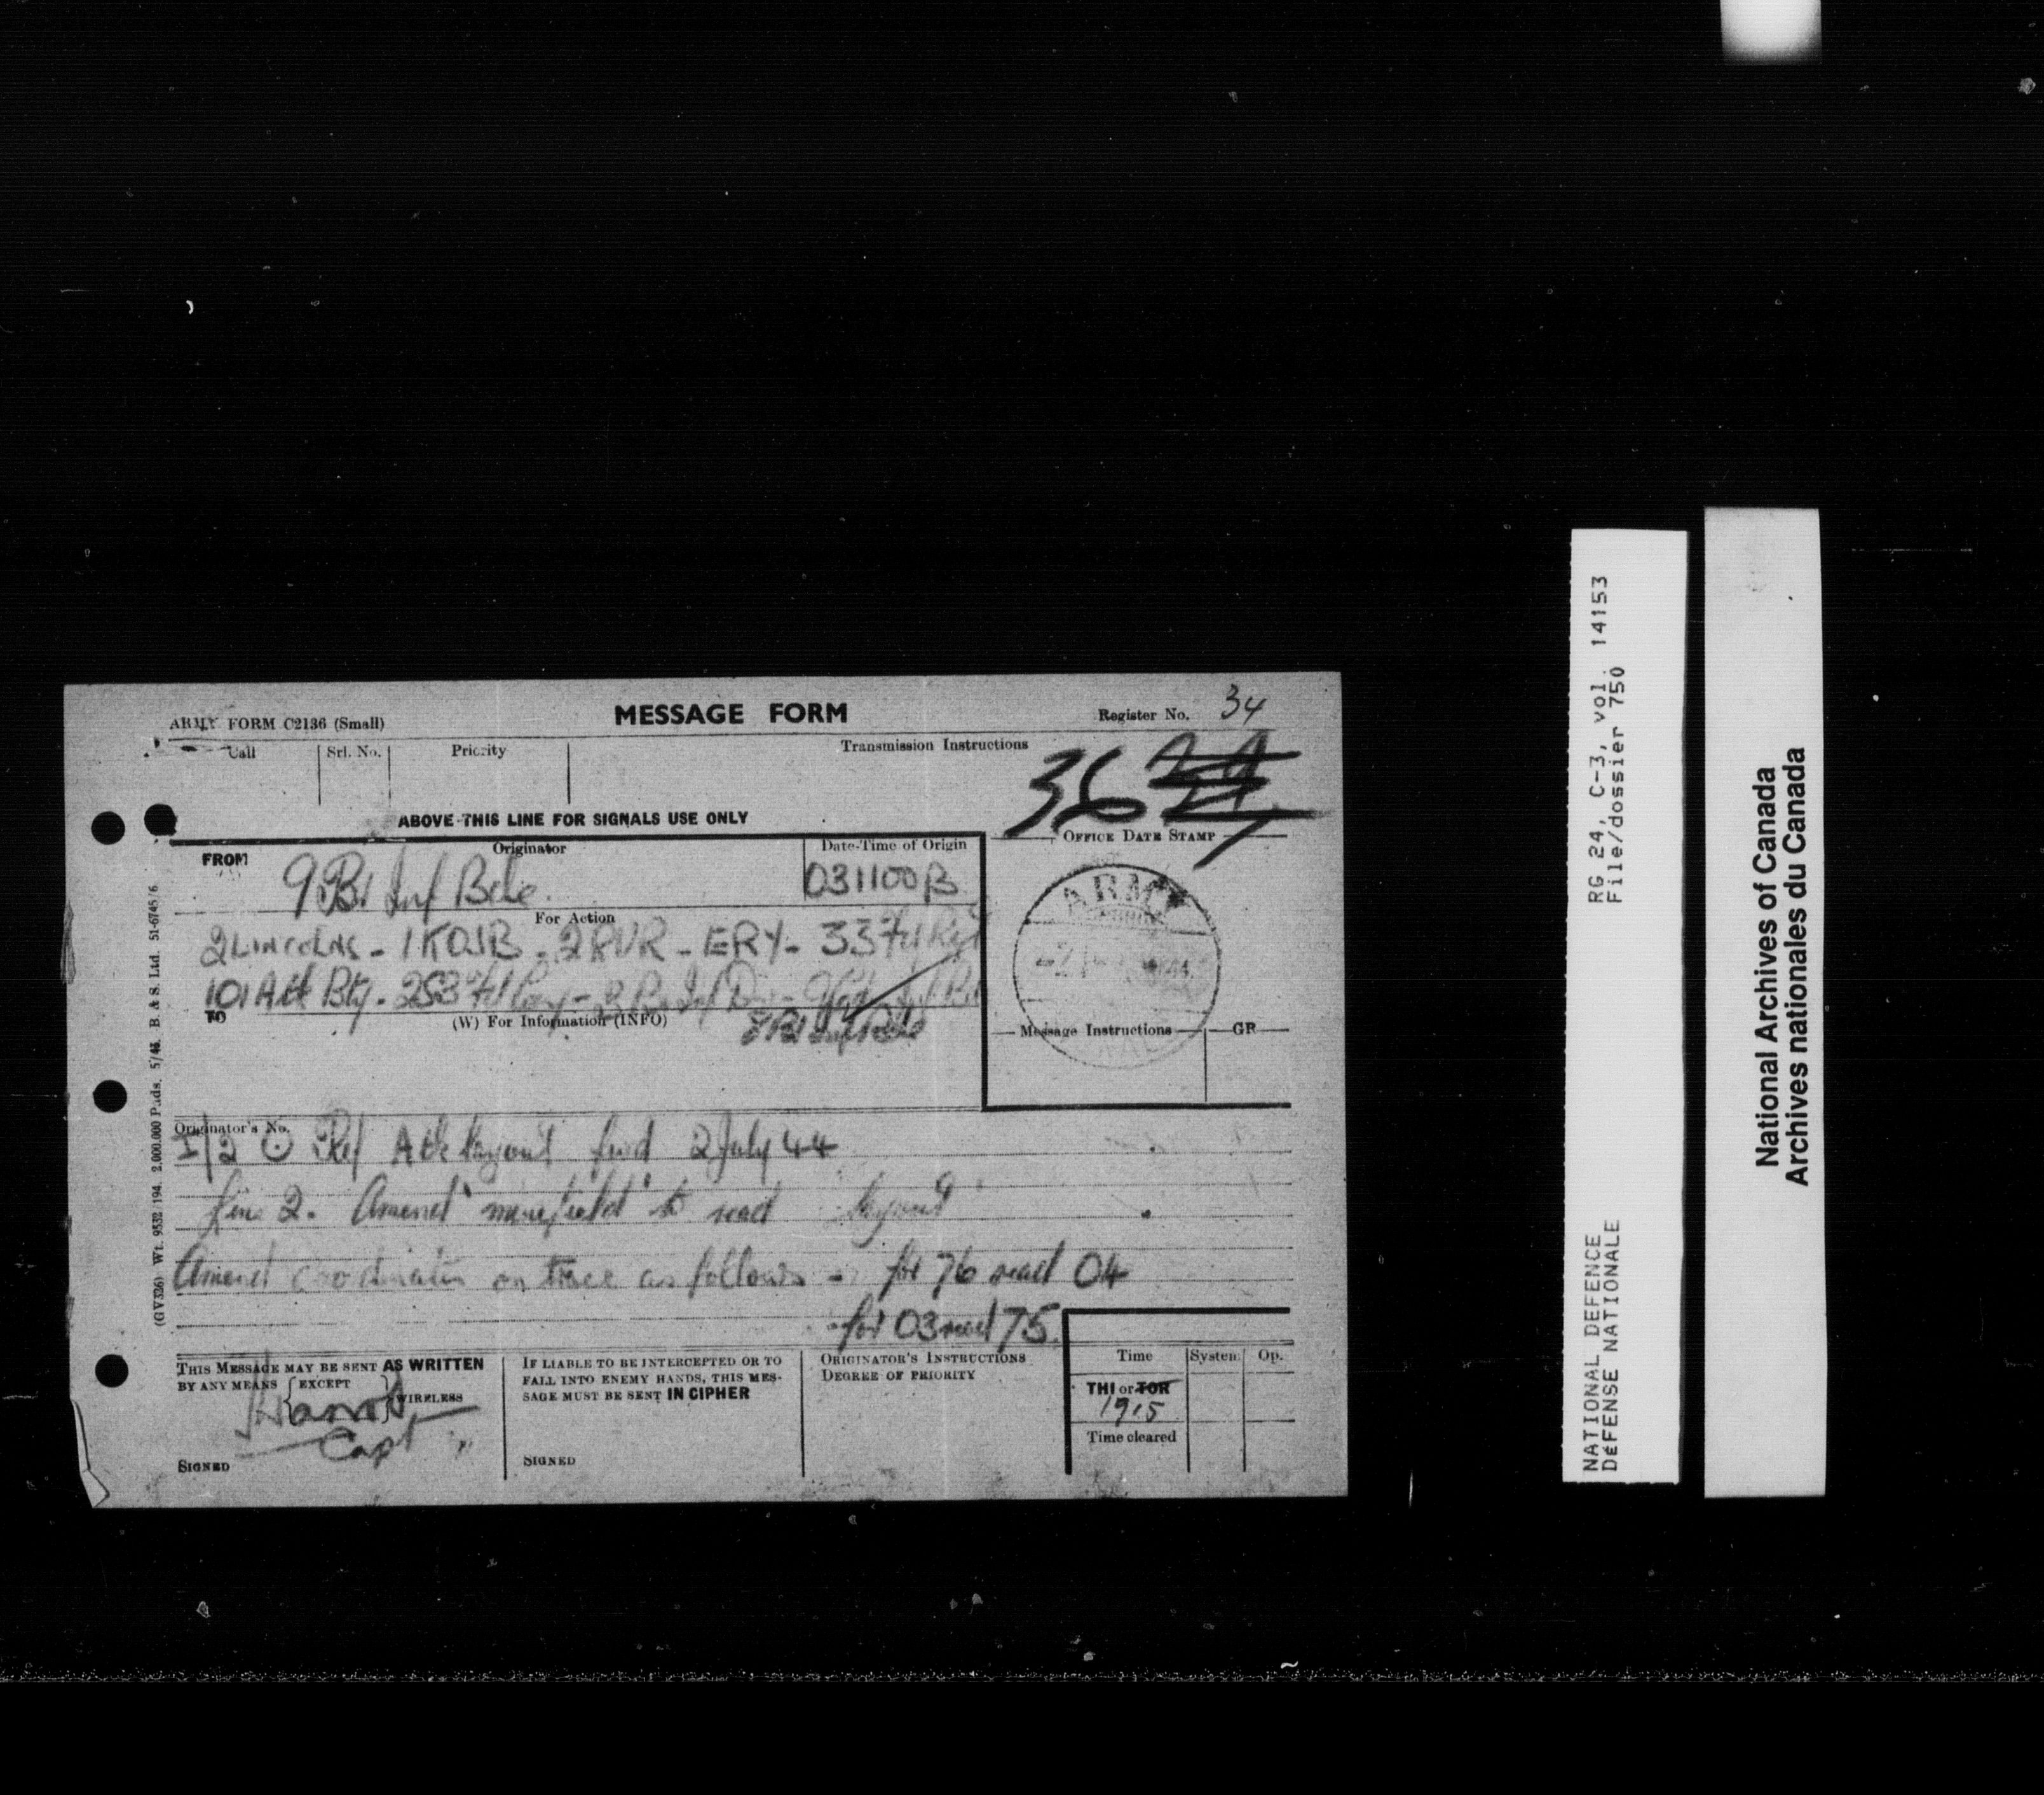 ARMY FORM C2136 (Small)
MESSAGE FORM
Register No. 34
Call
Srl. No.
Priority
Transmission Instructions
36
ABOVE THIS LINE FOR SIGNALS USE ONLY
OFFICE DATE STAMP
FROM
Originator
Date-Time of Origin
9 Br Inf Bde
031100B
ARMY
For Action
2 LINCOLNS - 1 KOSB - 2 RUR - ERY - 33 Fd Regt
101 A tk Bty - 253 Fd Coy - 3 Br Inf Div - 9 Cdn Inf Bde
TO
(W) For Information (INFO)
8 Br Inf Bde
Message Instructions
GR
Originator's No.
I/2 Ref A tk layout fwd 2 July 44
line 2. Amend "minefield" to read layout
Amend coordinates on trace as follows - for 76 read 04
for 03 read 75
THIS MESSAGE MAY BE SENT AS WRITTEN
BY ANY MEANS EXCEPT WIRELESS
Capt
SIGNED
IF LIABLE TO BE INTERCEPTED OR TO
FALL INTO ENEMY HANDS, THIS MES-
SAGE MUST BE SENT IN CIPHER
SIGNED
ORIGINATOR'S INSTRUCTIONS
DEGREE OF PRIORITY
Time
System
Op.
THI or TOR
1915
Time cleared
(GV326) Wt. 9532/194. 2,000,000 Pads. 5/43. B. & S. Ltd. 51-6745/6
RG 24, C-3, vol. 14153
File/dossier 750
NATIONAL DEFENCE
DÉFENSE NATIONALE
National Archives of Canada
Archives nationales du Canada